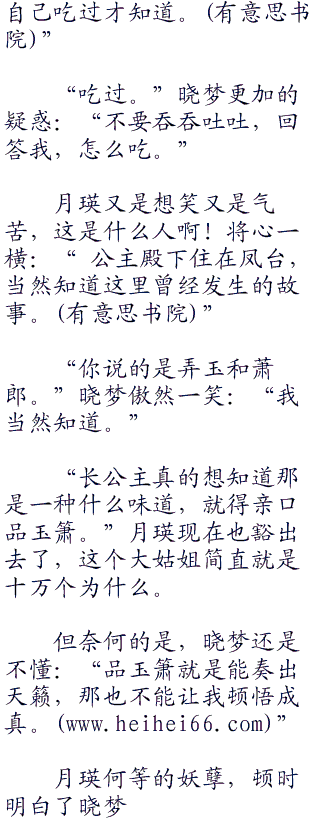 自己吃过才知道。(有意思书
院)”
“吃过。”晓梦更加的
疑惑：“不要吞吞吐吐，回
答我，怎么吃。”
月瑛又是想笑又是气
苦，这是什么人啊！将心一
横：“ 公主殿下住在凤台，
当然知道这里曾经发生的故
事。(有意思书院)”
“你说的是弄玉和萧
郎。”晓梦傲然一笑：“我
当然知道。”
“长公主真的想知道那
是一种什么味道，就得亲口
品玉箫。”月瑛现在也豁出
去了，这个大姑姐简直就是
十万个为什么。
但奈何的是，晓梦还是
不懂：“品玉箫就是能奏出
天籁，那也不能让我顿悟成
真。(www.heihei66.com)”
月瑛何等的妖孽，顿时
明白了晓梦